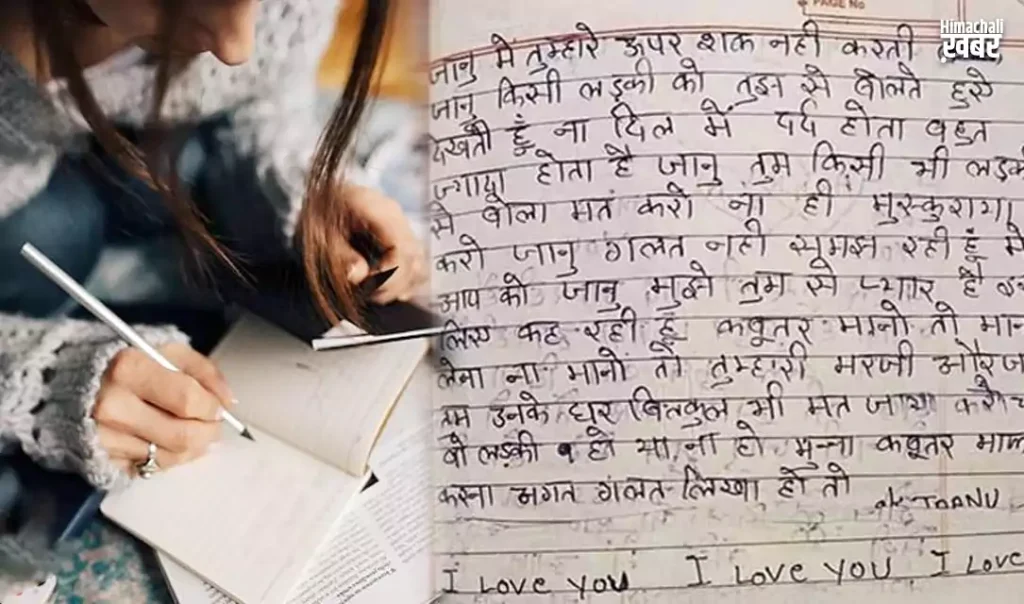 PAGE No
Himachali
ख़बर
जानु मे तुम्हारे ऊपर शक नही करती
जानु किसी लड़की को तुझ से बोलते हुऐ
देखती हूँ ना दिल में दर्द होता बहुत
ज्यादा होता है जानु तुम किसी भी लड़की
से बोला मत करो ना ही मुस्कुराया
करो जानु गलत नही समझ रही हूं मे
आप को जानु मुझे तुम से प्यार है
लिए कह रही हूँ कबूतर मानो तो मान
लेना ना मानो तो तुम्हारी मरजी और
तुम उनके घर बिलकुल भी मत जाया करो
वो लड़की हो या ना हो कबूतर
करना अगत गलत लिखा हो तो
I Love you I Love you I Love